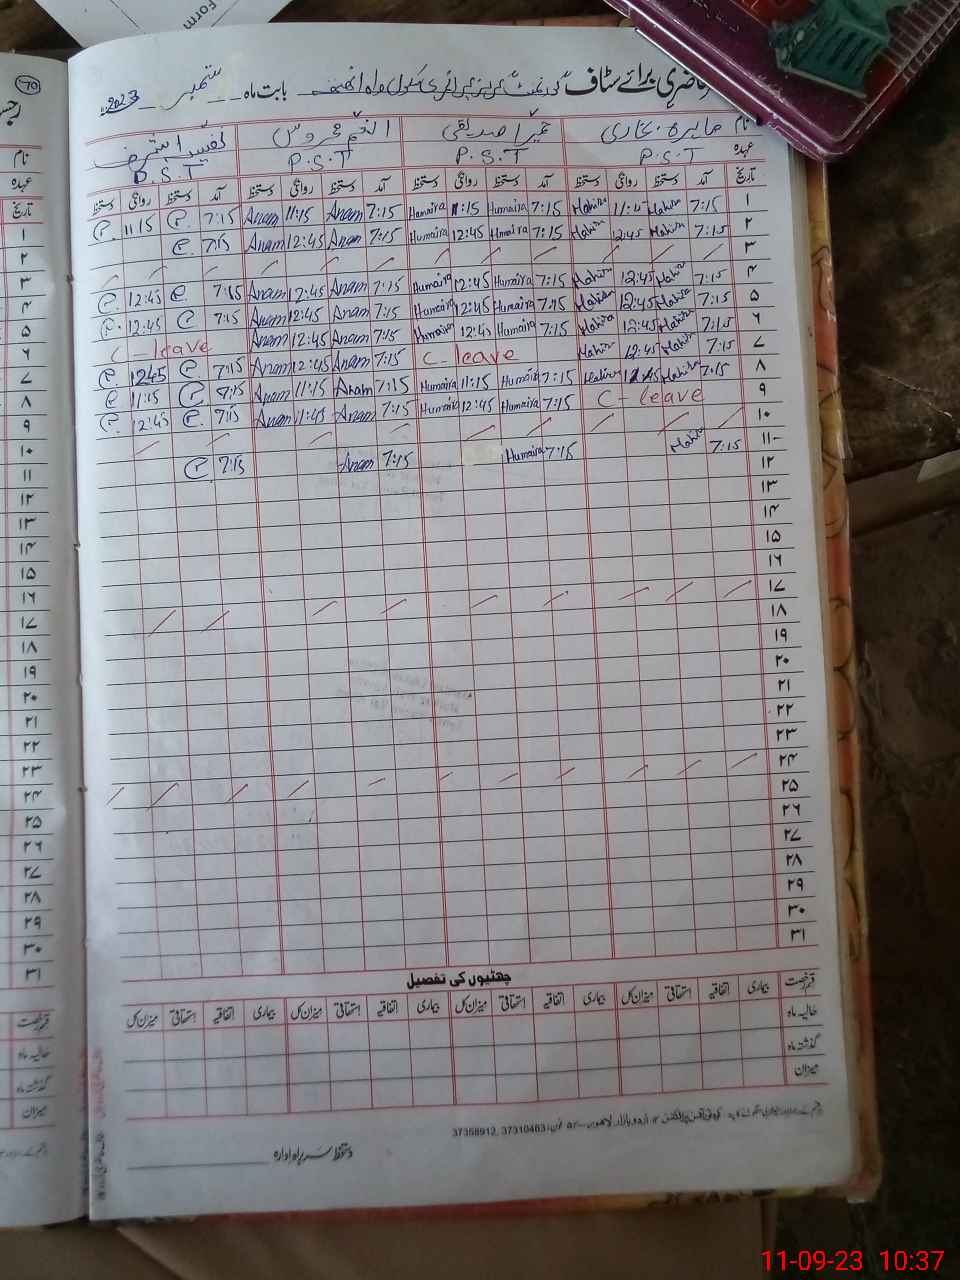 Form
حاضری برائے سٹاف گورنمنٹ گرلز پرائمری سکول واہ بابت ماہ ستمبر 2023
نام ماہرہ بخاری حمیرا صدیقی انعم عروس نفیسہ اشرف
عہدہ P.S.T P.S.T P.S.T P.S.T
تاریخ آمد دستخط روانگی دستخط آمد دستخط روانگی دستخط آمد دستخط روانگی دستخط آمد دستخط روانگی دستخط
۱ 7:15 Mahira 11:45 Mahira 7:15 Humaira 11:15 Humaira 7:15 Anam 11:15 Anam 7:15 11:15
۲ 7:15 Mahira 12:45 Mahira 7:15 Humaira 12:45 Humaira 7:15 Anam 12:45 Anam 7:15
۳
۴ 7:15 Mahira 12:45 Mahira 7:15 Humaira 12:45 Humaira 7:15 Anam 12:45 Anam 7:15 12:45
۵ 7:15 Mahira 12:45 Mahira 7:15 Humaira 12:45 Humaira 7:15 Anam 12:45 Anam 7:15 12:45
۶ 7:15 Mahira 12:45 Mahira 7:15 Humaira 12:45 Humaira 7:15 Anam 12:45 Anam C-leave
۷ 7:15 Mahira 12:45 Mahira C-leave 7:15 Anam 12:45 Anam 7:15 12:45
۸ 7:15 Mahira Mahira 7:15 Humaira 11:15 Humaira 7:15 Anam 11:15 Anam 7:15 11:15
۹ C-leave 7:15 Humaira 12:45 Humaira 7:15 Anam 11:45 Anam 7:15 12:45
۱۰
۱۱ 7:15 Mahira 7:15 Humaira 7:15 Anam 7:15
۱۲
۱۳
۱۴
۱۵
۱۶
۱۷
۱۸
۱۹
۲۰
۲۱
۲۲
۲۳
۲۴
۲۵
۲۶
۲۷
۲۸
۲۹
۳۰
۳۱
چھٹیوں کی تفصیل
قسم رخصت بیماری اتفاقیہ استحقاقی میزان کل بیماری اتفاقیہ استحقاقی میزان کل بیماری اتفاقیہ استحقاقی میزان کل بیماری اتفاقیہ استحقاقی میزان کل
حالیہ ماہ
گذشتہ ماہ
میزان
اردو بازار لاہور 37358912, 37310463
دستخط سربراہ ادارہ
۷۰
نام
عہدہ
تاریخ
۱
۲
۳
۴
۵
۶
۷
۸
۹
۱۰
۱۱
۱۲
۱۳
۱۴
۱۵
۱۶
۱۷
۱۸
۱۹
۲۰
۲۱
۲۲
۲۳
۲۴
۲۵
۲۶
۲۷
۲۸
۲۹
۳۰
۳۱
قسم رخصت
حالیہ ماہ
گذشتہ ماہ
میزان
11-09-23 10:37